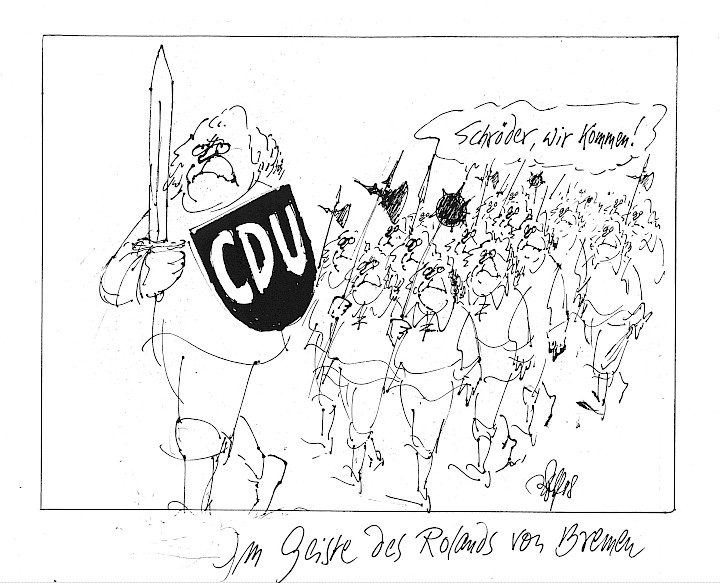 Schröder, wir kommen!
CDU
Im Geiste des Rolands von Bremen